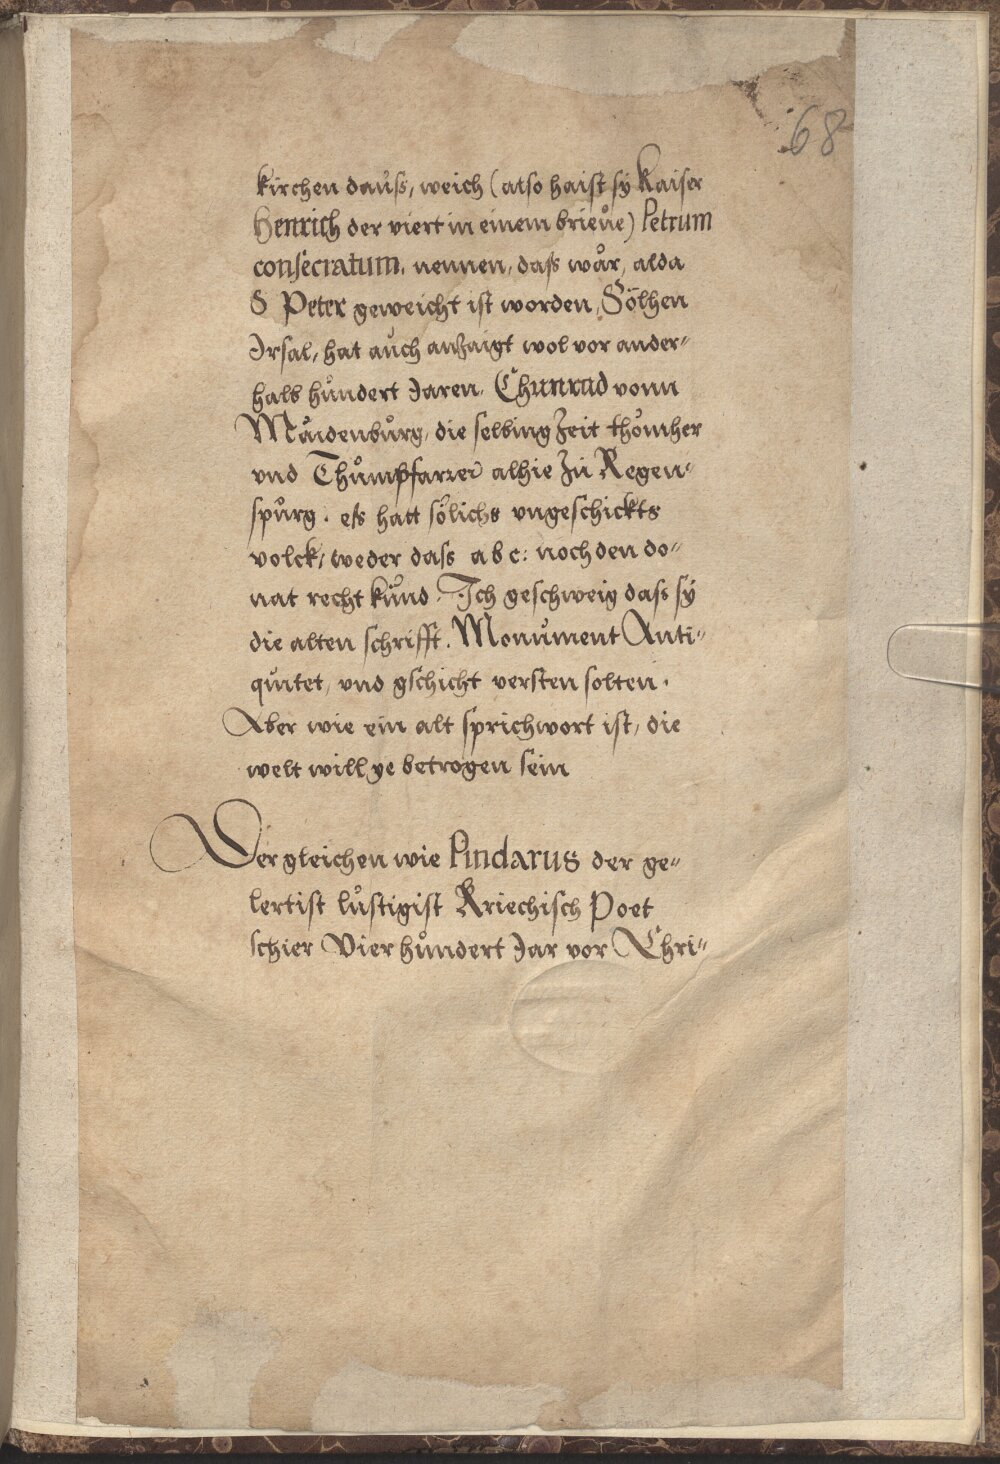 68
kirchen dauß, weich (also haist sy Kaiser
Henrich der viert in einem brieue) Petrum
consecratum, nennen, daß wår, alda
S Peter geweicht ist worden, Sölhen
Irsal, hat auch anzaigt wol vor ander-
halb hundert Jaren, Chunrad vonn
Maidenburg, die selbing zeit thomher
vnd Thumpfarrer alhie zu Regen-
spurg. eß hatt sölichs vngeschickts
volck, weder dass a b c: noch den do-
nat recht kund. Ich geschweig daß sy
die alten schrifft. Monument Anti-
quitet, vnd gschicht versten solten.
Aber wie ein alt sprichwort ist, die
welt will ye betrogen sein
Der gleichen wie Pindarus der ge-
lertist lustigist Kriechisch Poet
schier Vier hundert Jar vor Chri-